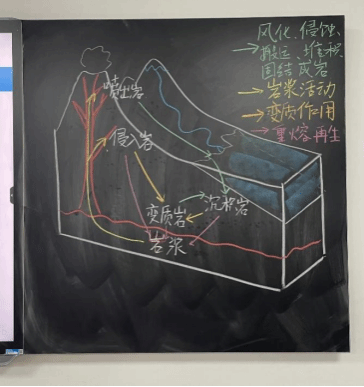 风化、侵蚀、
搬运、堆积、
固结成岩
岩浆活动
变质作用
重熔再生
喷出岩
侵入岩
变质岩
沉积岩
岩浆